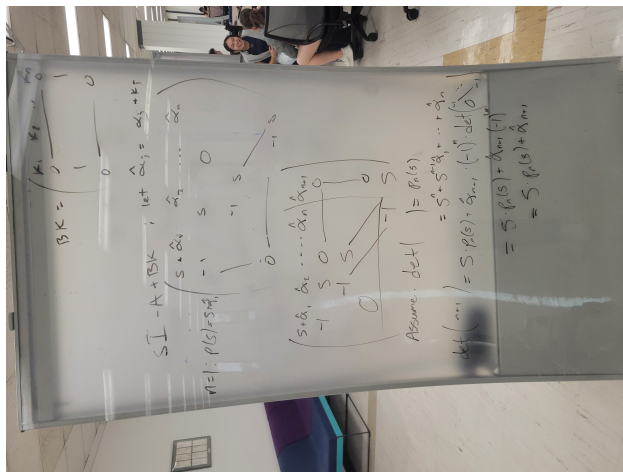 BK = ( k₁ k₂ ... kₙ
0 1
1
0 0
SI - A + BK , let α̂ᵢ = αᵢ + kᵢ
( s+α̂₁ α̂₂ ... α̂ₙ
-1 s 0
-1 s
0 -1 s )
n=1: P(s) = s+α̂₁
( s+α̂₁ α̂₂ ..... α̂ₙ | α̂ₙ₊₁
-1 s 0 0
-1 s
0 0
-1 s )
Assume. det( ) = pₙ(s)
= sⁿ + sⁿ⁻¹α̂₁ + ... + α̂ₙ
det( n+1 ) = s pₙ(s) + α̂ₙ₊₁ · (-1)ⁿ · det( -1 0 -1 )
= s · pₙ(s) + α̂ₙ₊₁ (-1)²ⁿ
= s · pₙ(s) + α̂ₙ₊₁